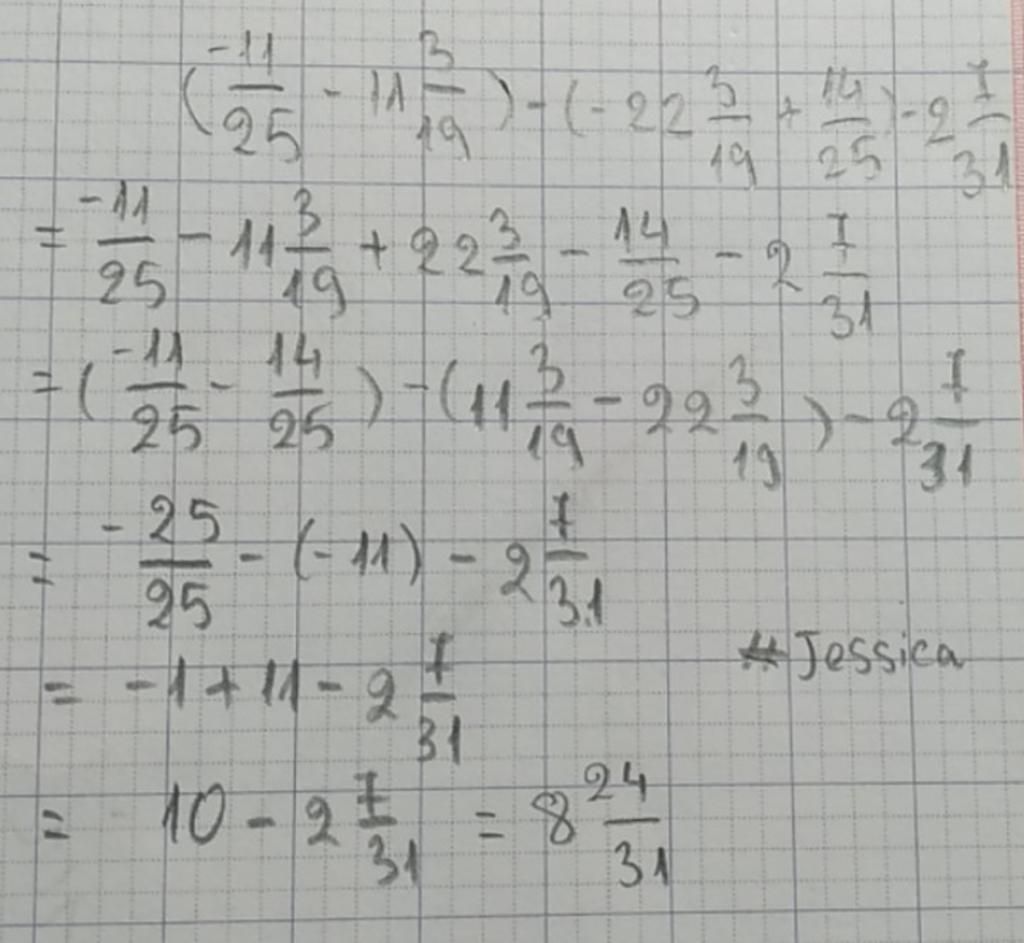 (-11/25 - 11 3/19) - (-22 3/19 + 14/25) - 2 7/31
= -11/25 - 11 3/19 + 22 3/19 - 14/25 - 2 7/31
= (-11/25 - 14/25) - (11 3/19 - 22 3/19) - 2 7/31
= -25/25 - (-11) - 2 7/31
#Jessica
= -1 + 11 - 2 7/31
= 10 - 2 7/31 = 8 24/31